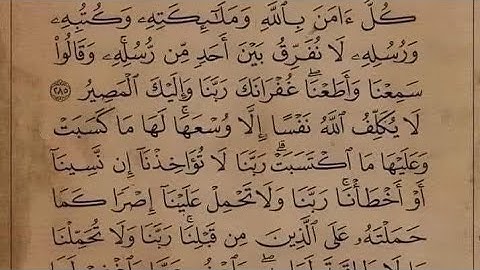 كُلٌّ ءَامَنَ بِٱللَّهِ وَمَلَٰٓئِكَتِهِۦ وَكُتُبِهِۦ
وَرُسُلِهِۦ لَا نُفَرِّقُ بَيْنَ أَحَدٍ مِّن رُّسُلِهِۦۚ وَقَالُوا۟
سَمِعْنَا وَأَطَعْنَاۖ غُفْرَانَكَ رَبَّنَا وَإِلَيْكَ ٱلْمَصِيرُ ٢٨٥
لَا يُكَلِّفُ ٱللَّهُ نَفْسًا إِلَّا وُسْعَهَاۚ لَهَا مَا كَسَبَتْ
وَعَلَيْهَا مَا ٱكْتَسَبَتْۗ رَبَّنَا لَا تُؤَاخِذْنَآ إِن نَّسِينَآ
أَوْ أَخْطَأْنَاۚ رَبَّنَا وَلَا تَحْمِلْ عَلَيْنَآ إِصْرًا كَمَا
حَمَلْتَهُۥ عَلَى ٱلَّذِينَ مِن قَبْلِنَاۚ رَبَّنَا وَلَا تُحَمِّلْنَا